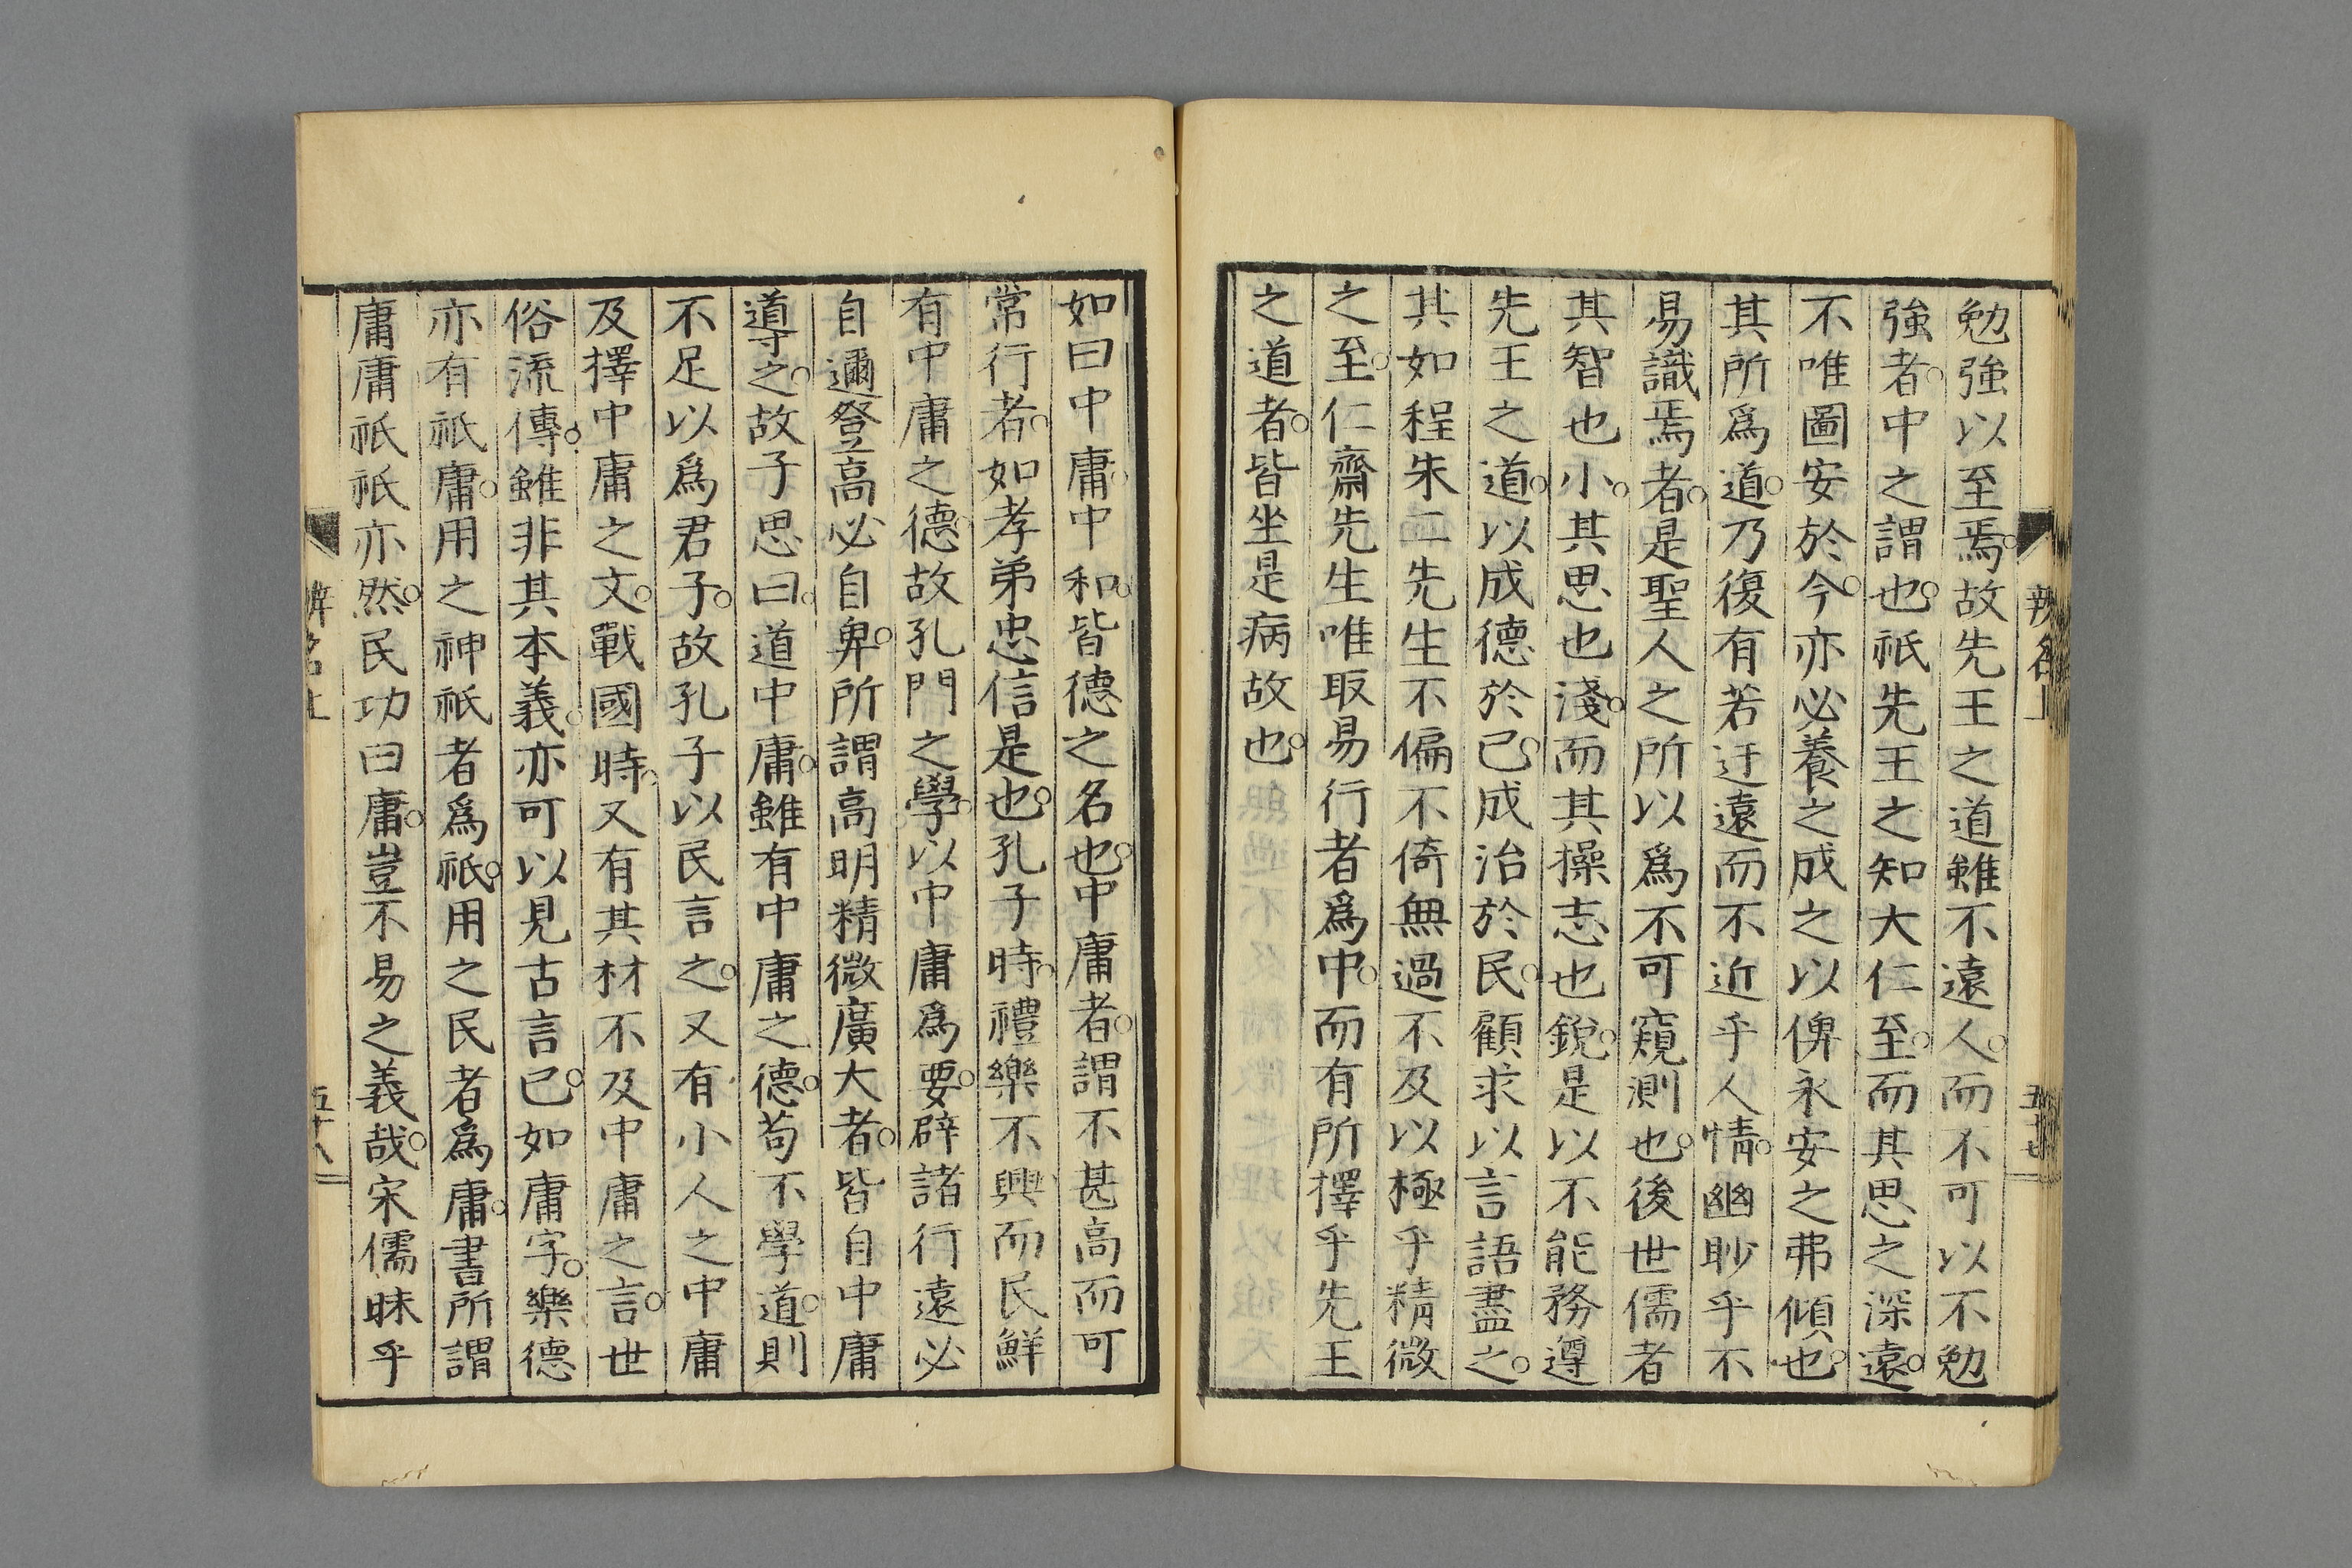 勉強以至焉。故先王之道雖不遠人。而不可以不勉
強者。中之謂也。祇先王之知大仁至。而其思之深遠。
不唯圖安於今。亦必養之成之以俾永安之弗傾也。
其所爲道。乃復有若迂遠而不近乎人情。幽眇乎不
易識焉者。是聖人之所以爲不可窺測也。後世儒者
其智也小。其思也淺。而其操志也銳。是以不能務遵
先王之道。以成德於己。成治於民。顧求以言語盡之。
其如程朱二先生不偏不倚無過不及以極乎精微
之至。仁齋先生唯取易行者爲中。而有所擇乎先王
之道者。皆坐是病故也。
辨名上
五十七
如曰中庸。中和。皆德之名也。中庸者。謂不甚高而可
常行者。如孝弟忠信是也。孔子時。禮樂不興而民鮮
有中庸之德。故孔門之學。以中庸爲要。辟諸行遠必
自邇登高必自卑。所謂高明精微廣大者。皆自中庸
導之。故子思曰。道中庸。雖有中庸之德。苟不學道。則
不足以爲君子。故孔子以民言之。又有小人之中庸
及擇中庸之文。戰國時。又有其材不及中庸之言。世
俗流傳。雖非其本義。亦可以見古言已。如庸字。樂德
亦有祇庸。用之神祇者爲祇。用之民者爲庸。書所謂
庸庸祇祇亦然。民功曰庸。豈不易之義哉。宋儒昧乎
辨名上
五十八